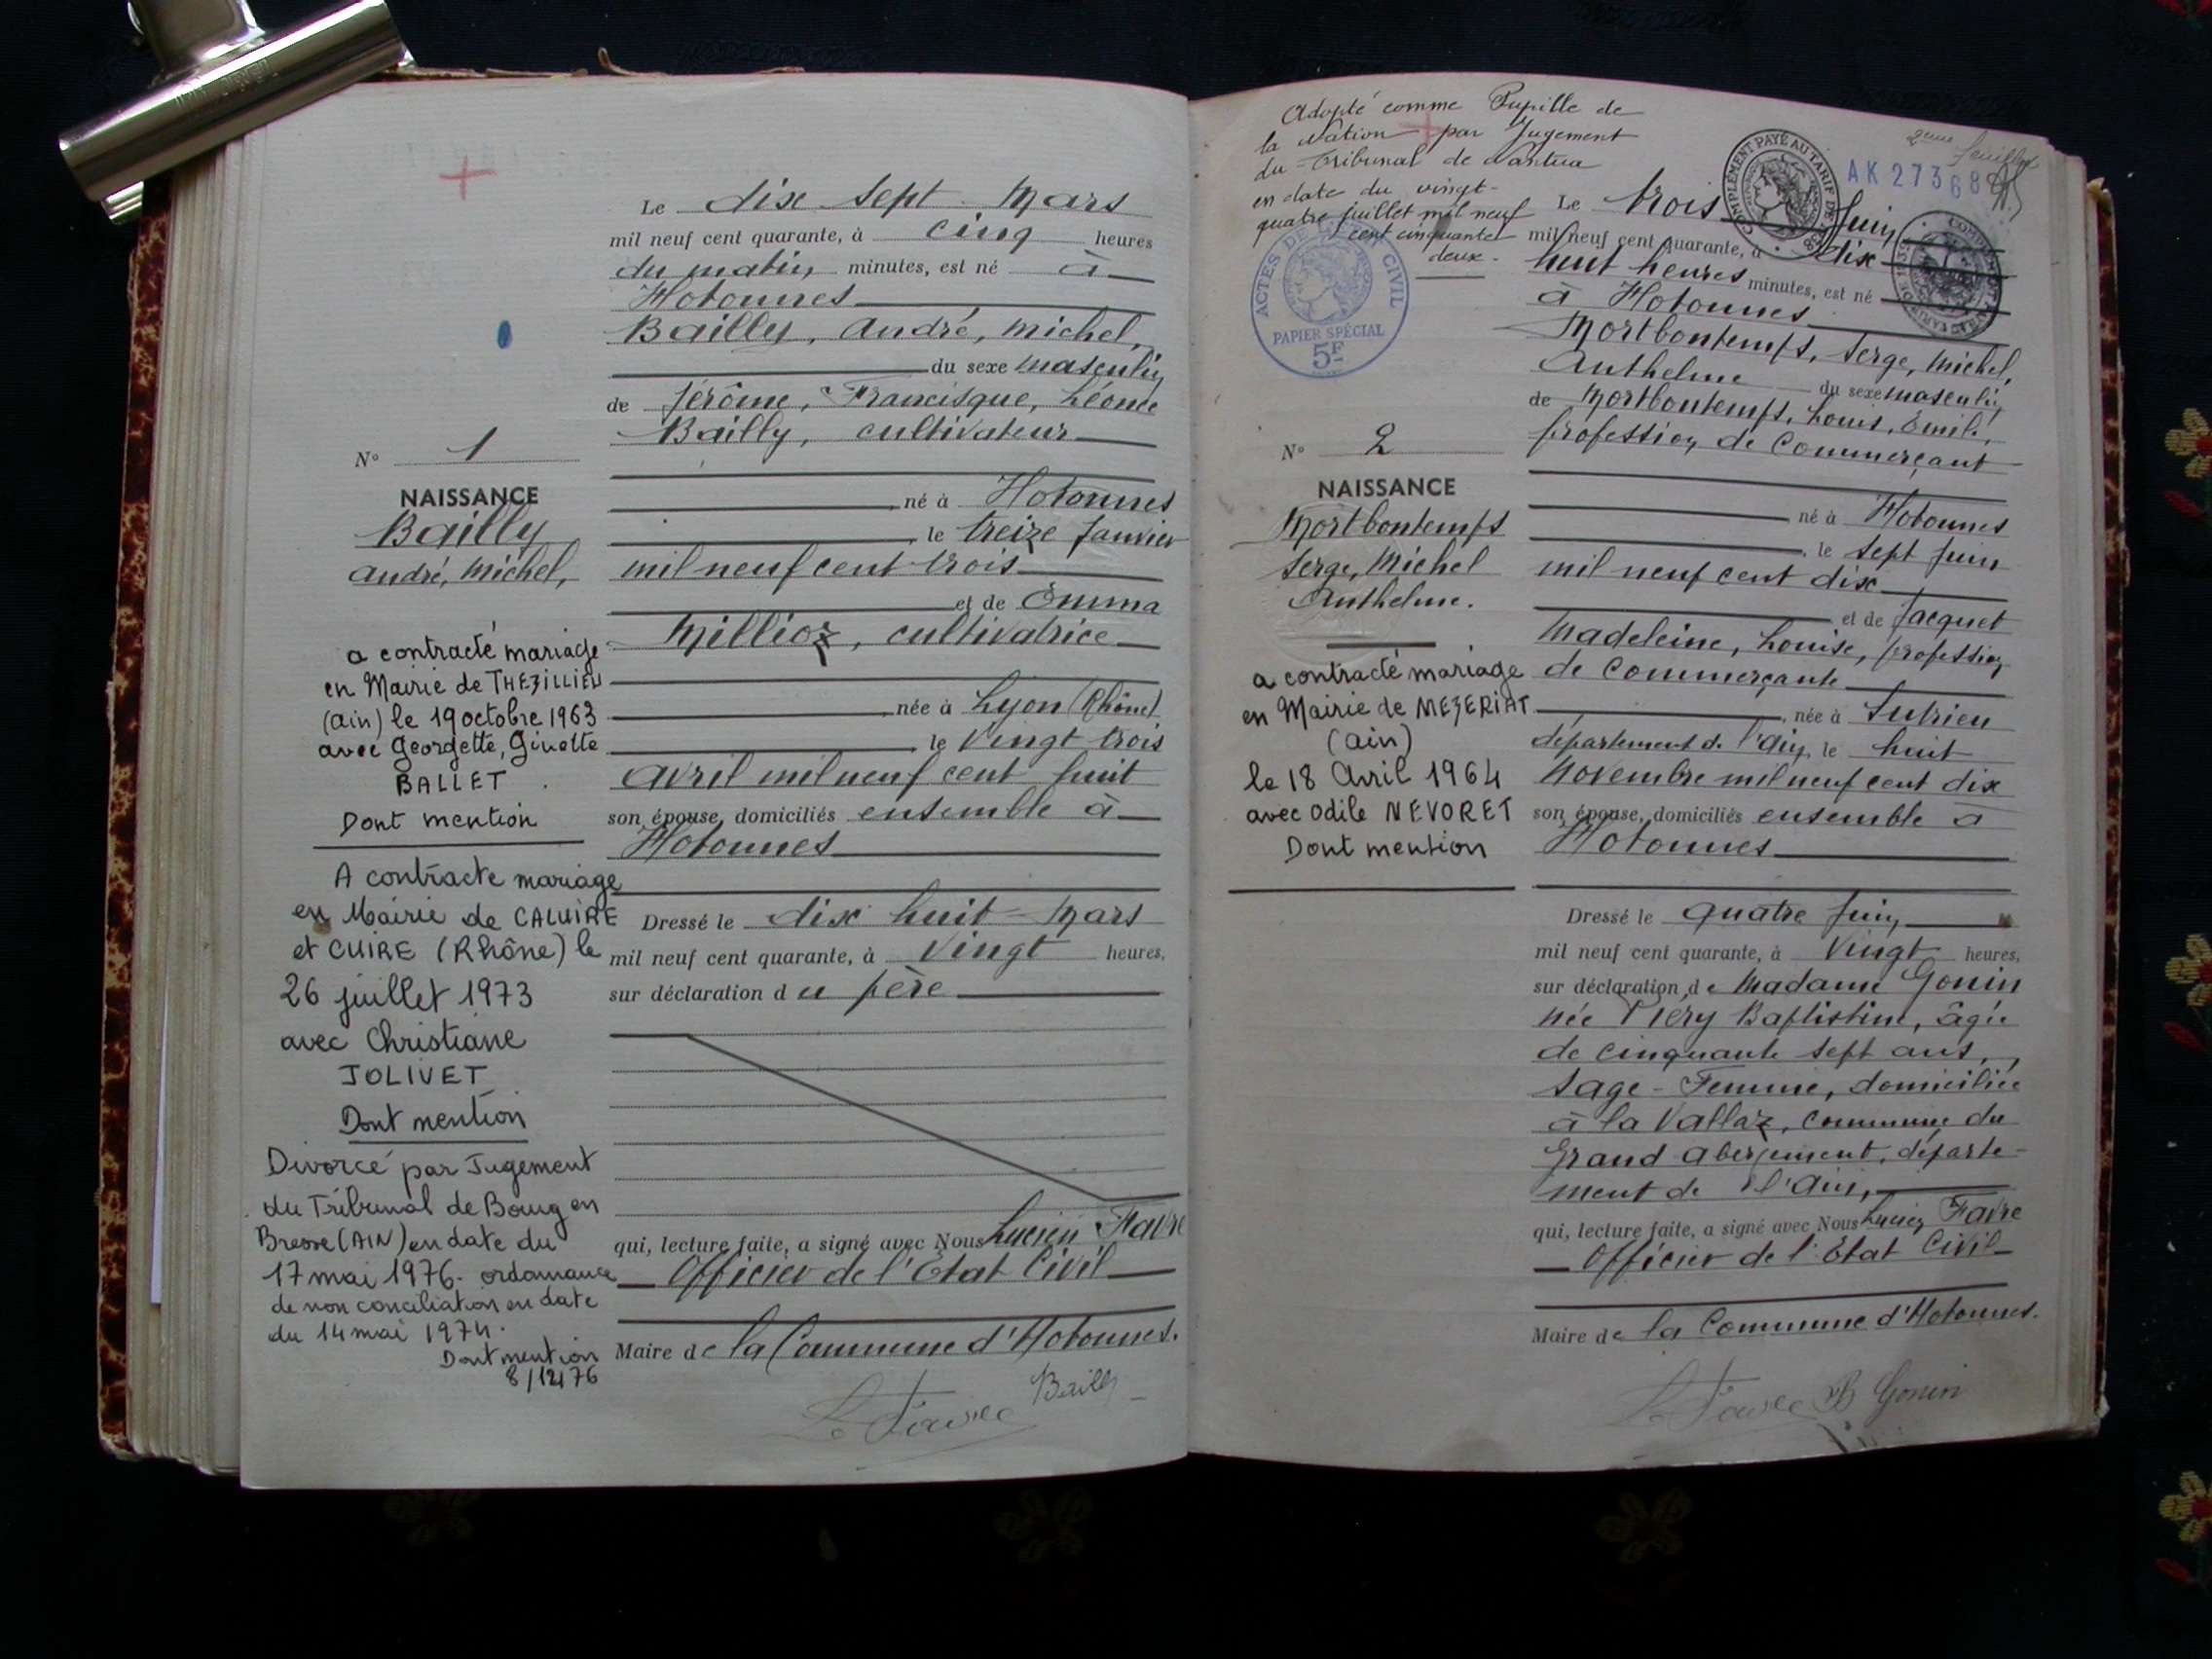 Le dix sept Mars
mil neuf cent quarante, à cinq heures
du matin minutes, est né à
Hotonnes
Bailly, André, Michel,
du sexe masculin
de Jérôme, Francisque, Léonce
Bailly, cultivateur
N° 1
NAISSANCE
Bailly
André, Michel,
né à Hotonnes
le treize Janvier
mil neuf cent trois
et de Emma
Millioz, cultivatrice
née à Lyon (Rhône)
le Vingt trois
Avril mil neuf cent huit
son épouse, domiciliés ensemble à
Hotonnes
Dressé le dix huit Mars
mil neuf cent quarante, à Vingt heures,
sur déclaration du père
qui, lecture faite, a signé avec Nous Lucien Favre
Officier de l'État Civil
Maire de la Commune d'Hotonnes.
L. Favre Bailly
a contracté mariage
en Mairie de THEZILLIEU
(Ain) le 19 octobre 1963
avec Georgette, Ginette
BALLET
Dont mention
A contracte mariage
en Mairie de CALUIRE
et CUIRE (Rhône) le
26 juillet 1973
avec Christiane
JOLIVET
Dont mention
Divorcé par Jugement
du Tribunal de Bourg en
Bresse (AIN) en date du
17 mai 1976. ordonnance
de non conciliation en date
du 14 mai 1974.
Dont mention
8/12/76
Adopté comme Pupille de
la Nation par Jugement
du Tribunal de Nantua
en date du vingt-
quatre juillet mil neuf
cent cinquante
deux.
ACTES DE L'ÉTAT CIVIL
PAPIER SPÉCIAL
5F
COMPLÉMENT PAYÉ AU TARIF DE
2eme feuillet
AK 27368
Le trois Juin
mil neuf cent quarante, à dix
huit heures minutes, est né
à Hotonnes
Mortbontemps, Serge, Michel,
Anthelme du sexe masculin
de Mortbontemps, Louis, Emile,
profession de Commerçant
N° 2
NAISSANCE
Mortbontemps
Serge, Michel
Anthelme.
né à Hotonnes
le sept Juin
mil neuf cent dix
et de Jacquet
Madeleine, Louise, profession
de Commerçante
née à Sutrieu
département de l'Ain, le huit
Novembre mil neuf cent dix
son épouse, domiciliés ensemble à
Hotonnes
a contracté mariage
en Mairie de MEZERIAT
(Ain)
le 18 Avril 1964
avec Odile NEVORET
Dont mention
Dressé le quatre Juin
mil neuf cent quarante, à Vingt heures,
sur déclaration de Madame Gonin
née Piéry Baptistine, âgée
de cinquante sept ans,
Sage-Femme, domiciliée
à la Vallaz, commune du
Grand Abergement, départe-
ment de l'Ain,
qui, lecture faite, a signé avec Nous Lucien Favre
Officier de l'État Civil
Maire de la Commune d'Hotonnes.
L. Favre B Gonin